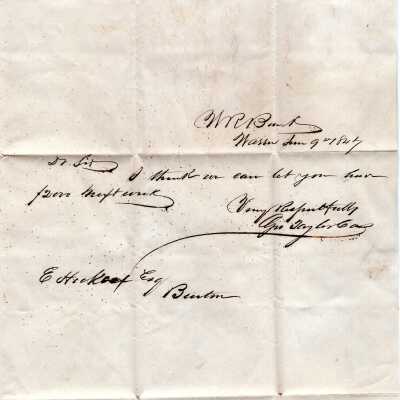 W R Bank
Warren Jan 9th 1847
Dr Sir
I think we can let you have
$2000 next week
Very Respectfully
Geo Taylor Cas
E Hickox Esq
Burton